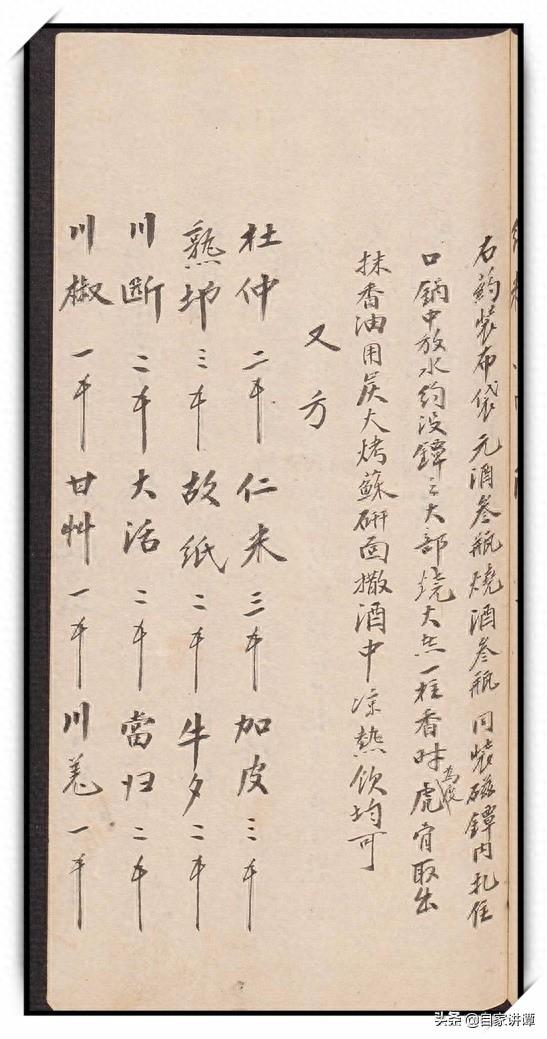 右药装布袋元酒叁瓶燒酒叁瓶同装磁鐔内扎住
口鍋中放水约没鐔之大部烧大一柱香时为度虎骨取出
抹香油用炭火烤蘇研面撒酒中凉熱饮均可
又方
杜仲二钱仁米三钱加皮三钱
熟地三钱故纸二钱牛夕二钱
川断二钱大活二钱當归二钱
川椒一钱甘艸一钱川羌一钱
头条 @自家讲谭